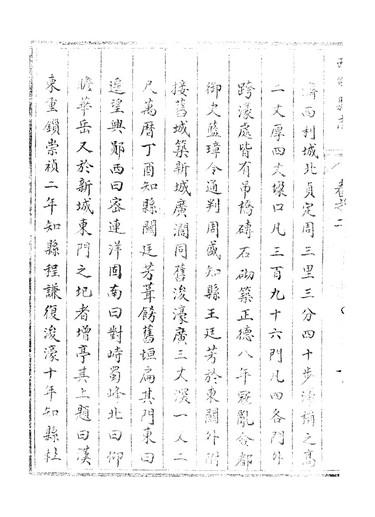 濟西利城北貞定周三里三分四十步濠稱之高
二丈厚四丈垜口凡三百九十六門凡四各門外
跨濠處皆有吊橋磚石砌築正德八年厥亂僉都
御史藍璋令通判周盛知縣王廷芳於東關外附
接舊城築新城廣濶同舊浚濠廣三丈深一人二
尺萬曆丁酉知縣闗廷芳葺餙舊垣扁其門東曰
遥望興鄖西曰密連洋固南曰對峙蜀峰北曰仰
瞻華岳又於新城東門之圯者增亭其上題曰漢
東重鎖崇禎二年知縣程謙復浚濠十年知縣杜
卷之二